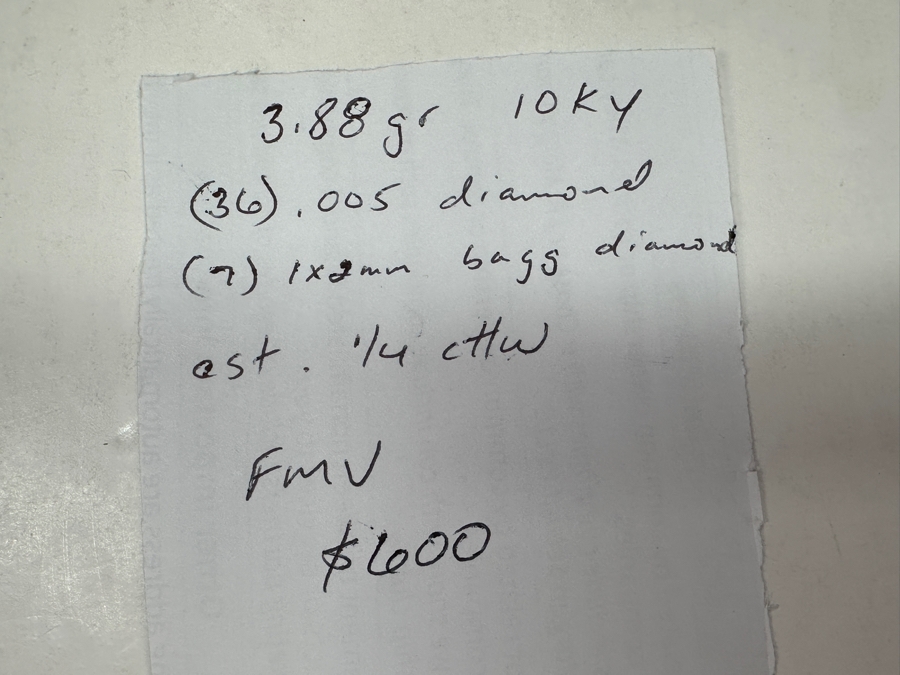 3.88 gr 10KY
(36) .005 diamond
(7) 1x2mm bagg diamond
est. 1/4 cttw
FMV
$600